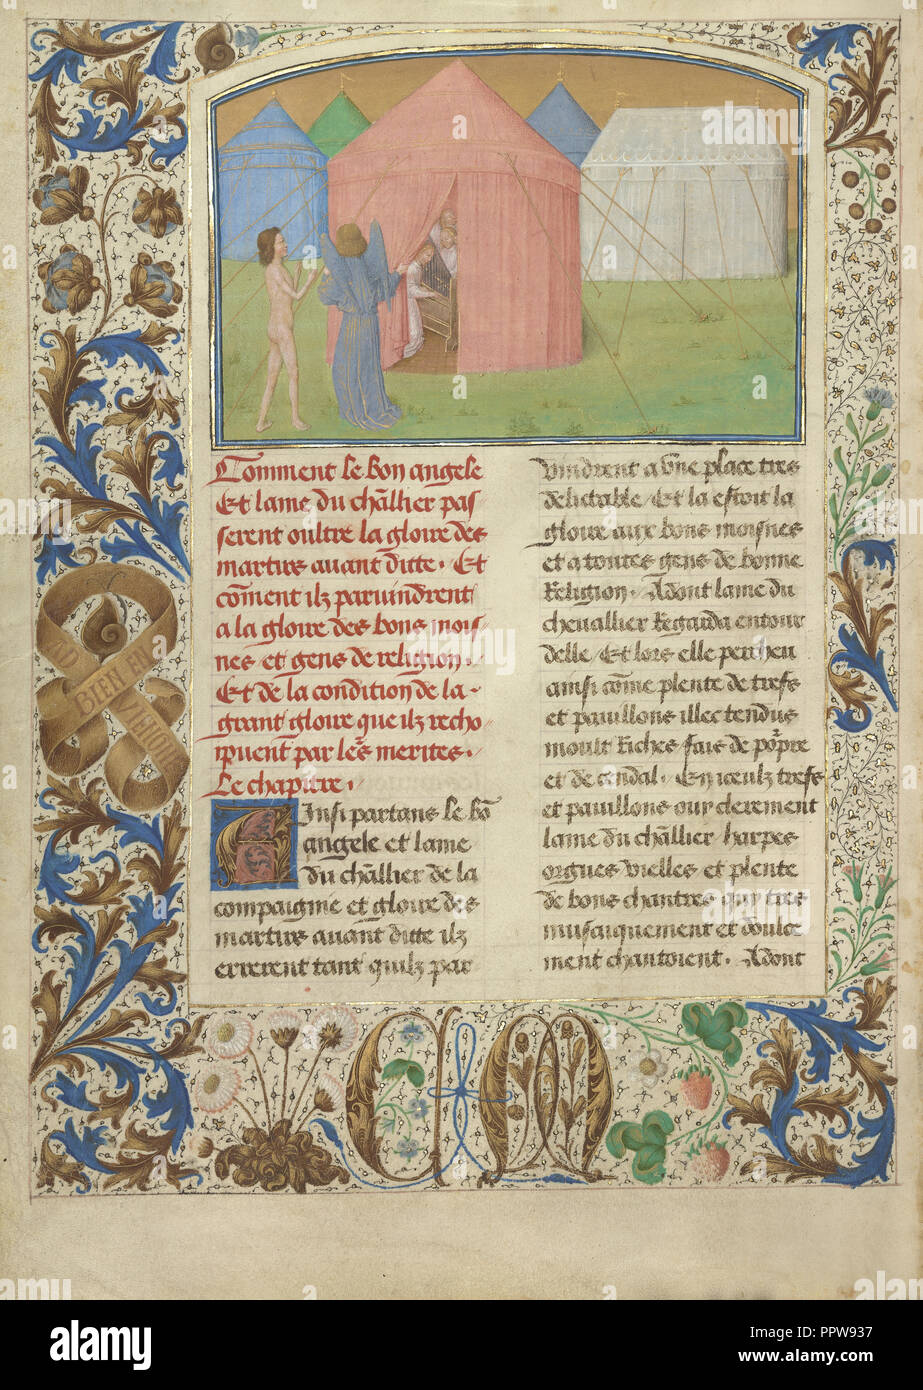 Comment le bon angele
Et lame du chãllier pas
serent oultre la gloire des
martirs auant ditte. Et
cõment ilz paruindrent
a la gloire des bons mois
nes et gens de religion.
Et de la condition de la
grant gloire que ilz recho
ipuent par le's merites.
Le chapitre.
Ainsi partans le bõ
angele et lame
du chãllier de la
compaignie et gloire des
martirs auant ditte ilz
errerent tant quilz par
uindrent a vne place tres
delictable / Et la estoit la
gloire aux bons moisnes
et a toutes gens de bonne
Religion. Adont lame du
cheuallier Regarda entour
delle / Et lors elle percheu
ainsi cõme plente de trefs
et pauillons illec tendus
moult Riches fais de põpre
et de cendal. En iceulz trefs
et pauillons ouy clerement
lame du chãllier harpes
orgues vielles et plente
de bons chantres qui tres
musaiquement et doulce
ment chantoient. Adont
BIEN EN
C M
alamy
Image ID: PPW937
www.alamy.com